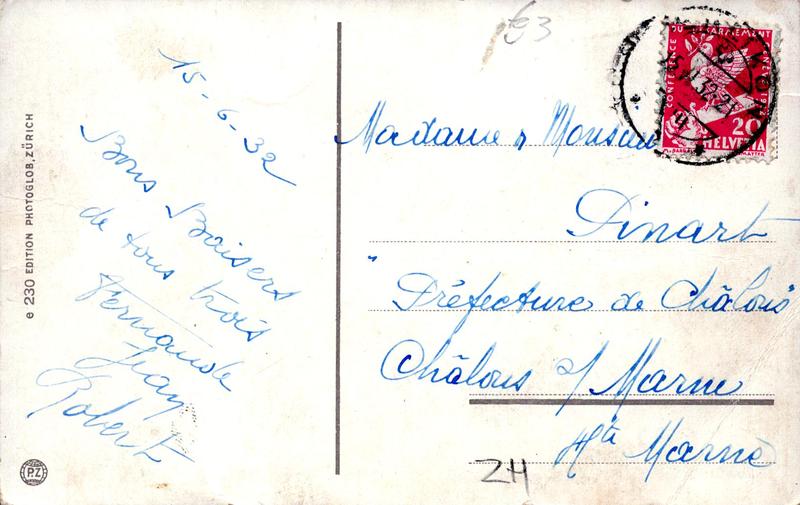 15-6-32
Bons Baisers
de tous trois
Fernande
Jean
Robert
e 230 EDITION PHOTOGLOB, ZÜRICH
PZ
€3
CONFERENCE DU DESARMEMENT
20
HELVETIA
Madame & Monsieur
Pinart
"Préfecture de Châlons"
Châlons s/ Marne
Hte Marne
ZH